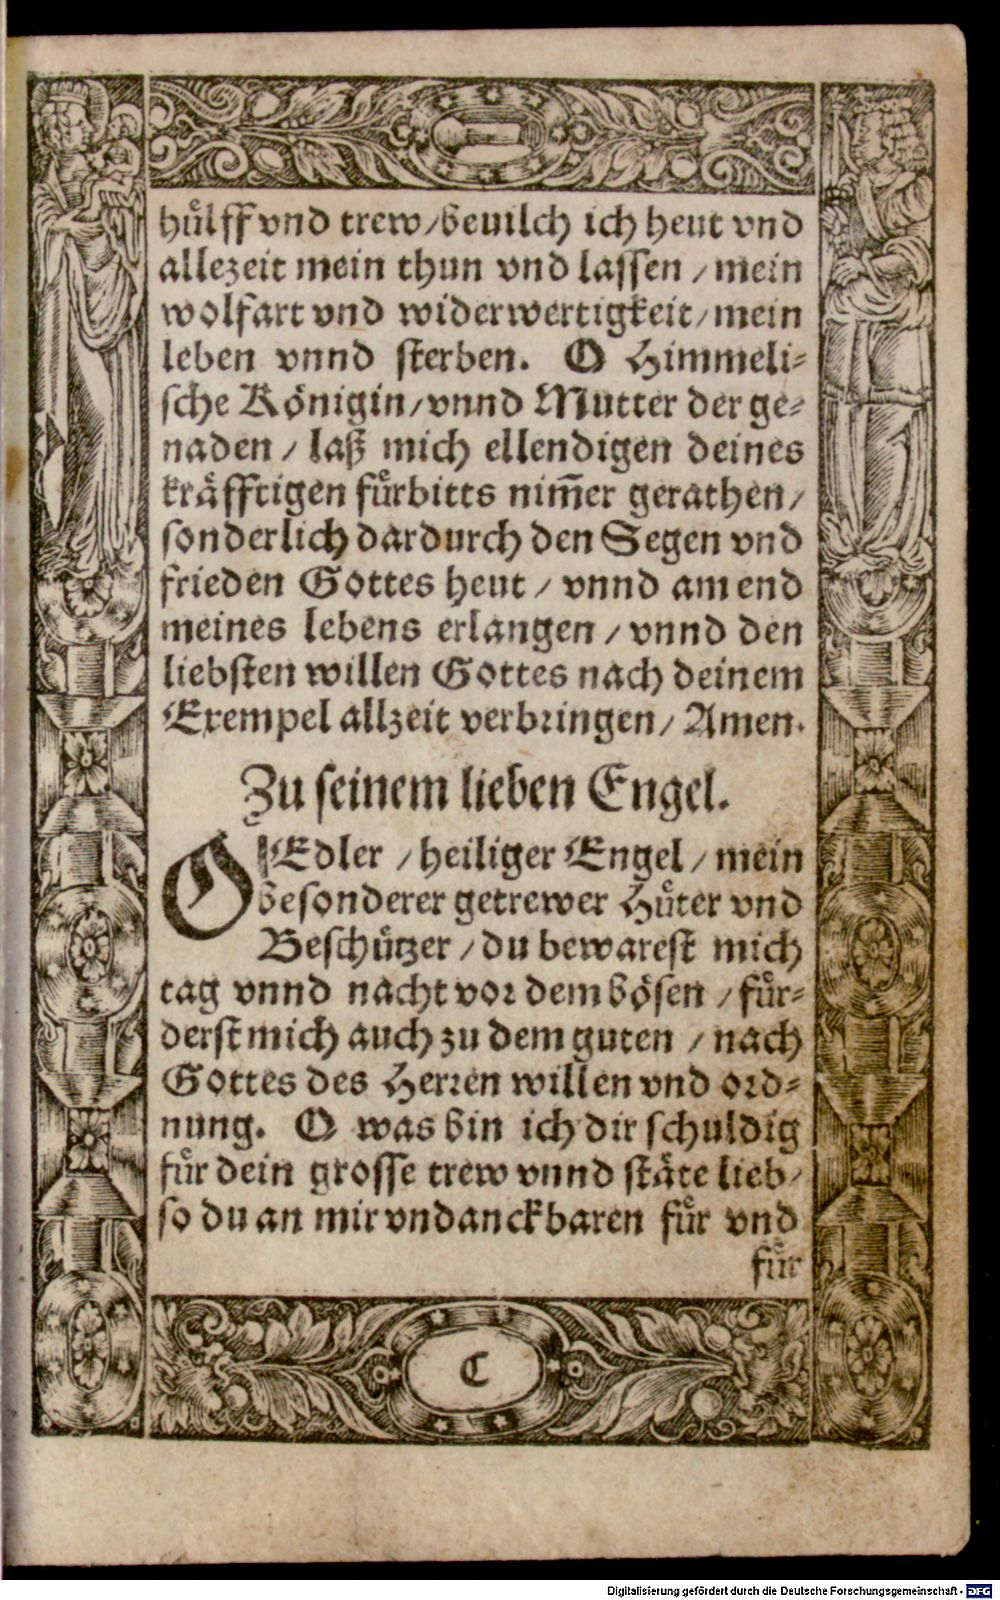 hůlff vnd trew/beuilch ich heut vnd
allezeit mein thun vnd lassen / mein
wolfart vnd widerwertigkeit/mein
leben vnnd sterben. O Himmeli-
sche Königin/vnnd Mutter der ge-
naden / laß mich ellendigen deines
kräfftigen fůrbitts nim̃er gerathen/
sonderlich dardurch den Segen vnd
frieden Gottes heut / vnnd am end
meines lebens erlangen / vnnd den
liebsten willen Gottes nach deinem
Exempel allzeit verbringen/ Amen.
Zu seinem lieben Engel.
O Edler / heiliger Engel / mein
besonderer getrewer Hůter vnd
Beschůtzer / du bewarest mich
tag vnnd nacht vor dem bösen / fůr-
derst mich auch zu dem guten / nach
Gottes des Herren willen vnd ord-
nung. O was bin ich dir schuldig
fůr dein grosse trew vnnd stäte lieb/
so du an mir vndanckbaren fůr vnd
fůr
C
Digitalisierung gefördert durch die Deutsche Forschungsgemeinschaft - DFG